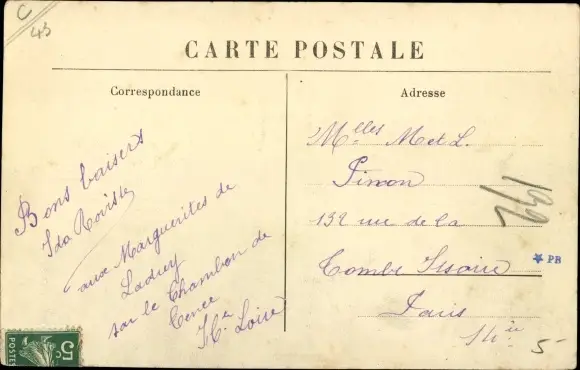 C
43
CARTE POSTALE
Correspondance
Bons baisers
Ida
aux Marguerites de
sur le Chambon de
Tence
Hte Loire
5c
POSTES
Adresse
Mlles M et L.
Pinon
192 rue de la
Tombe Issoire
Paris
14 ie
PB
5-